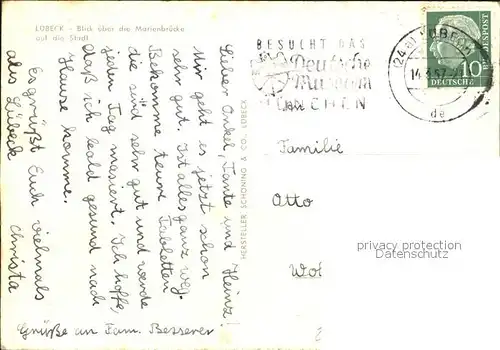 LÜBECK - Blick über die Marienbrücke
auf die Stadt
Lieber Onkel, Tante und Heinz!
Mir geht es jetzt schon
sehr gut. Ist alles ganz weg.
Bekomme teure Tabletten
die sind sehr gut und werde
jeden Tag masiert. Ich hoffe,
daß ich bald gesund nach
Hause komme.
Es grüßt Euch vielmals
aus Lübeck Christa
Grüße an Fam. Besserer
HERSTELLER SCHÖNING & CO., LÜBECK
BESUCHT DAS
Deutsche
Museum
MÜNCHEN
(24a) LÜBECK
de
DEUTSCHE BUNDESPOST
10
Familie
Otto
Wol
privacy protection
Datenschutz